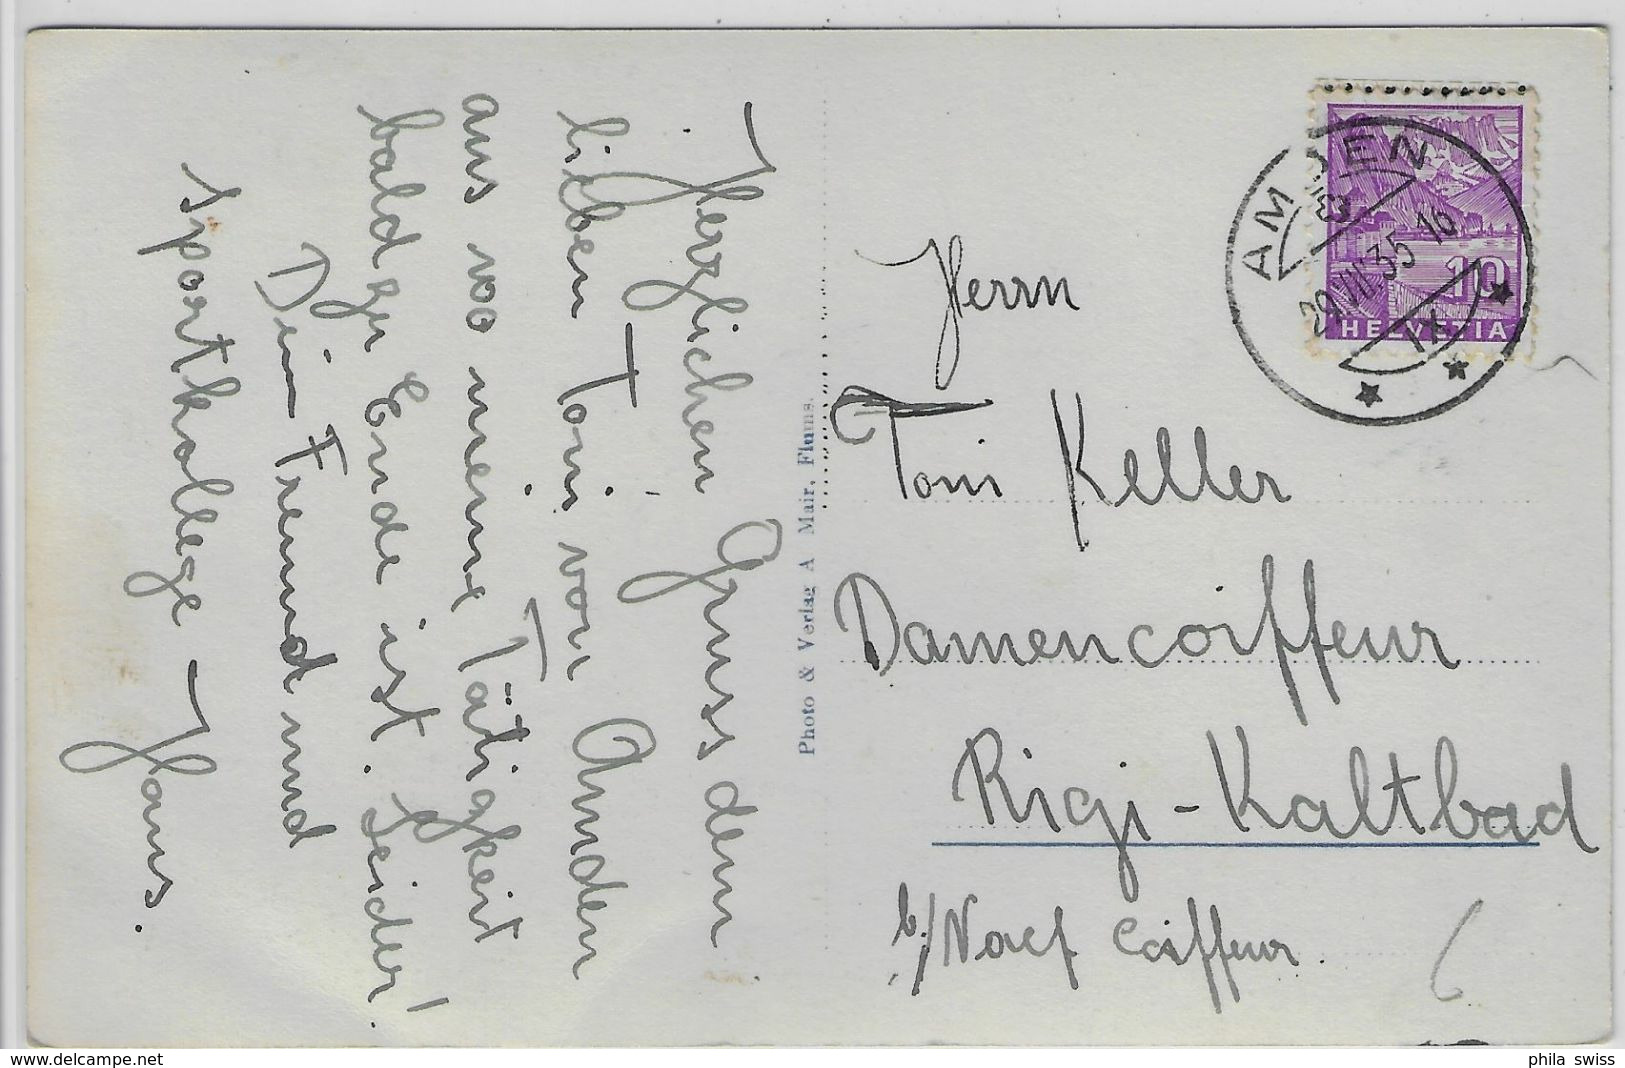 Herzlichen Gruss dem
lieben Toni von Amden
aus wo meine Tätigkeit
baldger Ende ist. Leider!
Dein Freund und
Sportkollege Hans.
Photo & Verlag A Mair, Flums.
AMDEN
29.VII.35 16
IX
10
HELVETIA
Herrn
Toni Keller
Damencoiffeur
Rigi-Kaltbad
b/Naef Coiffeur.
phila swiss
www.delcampe.net